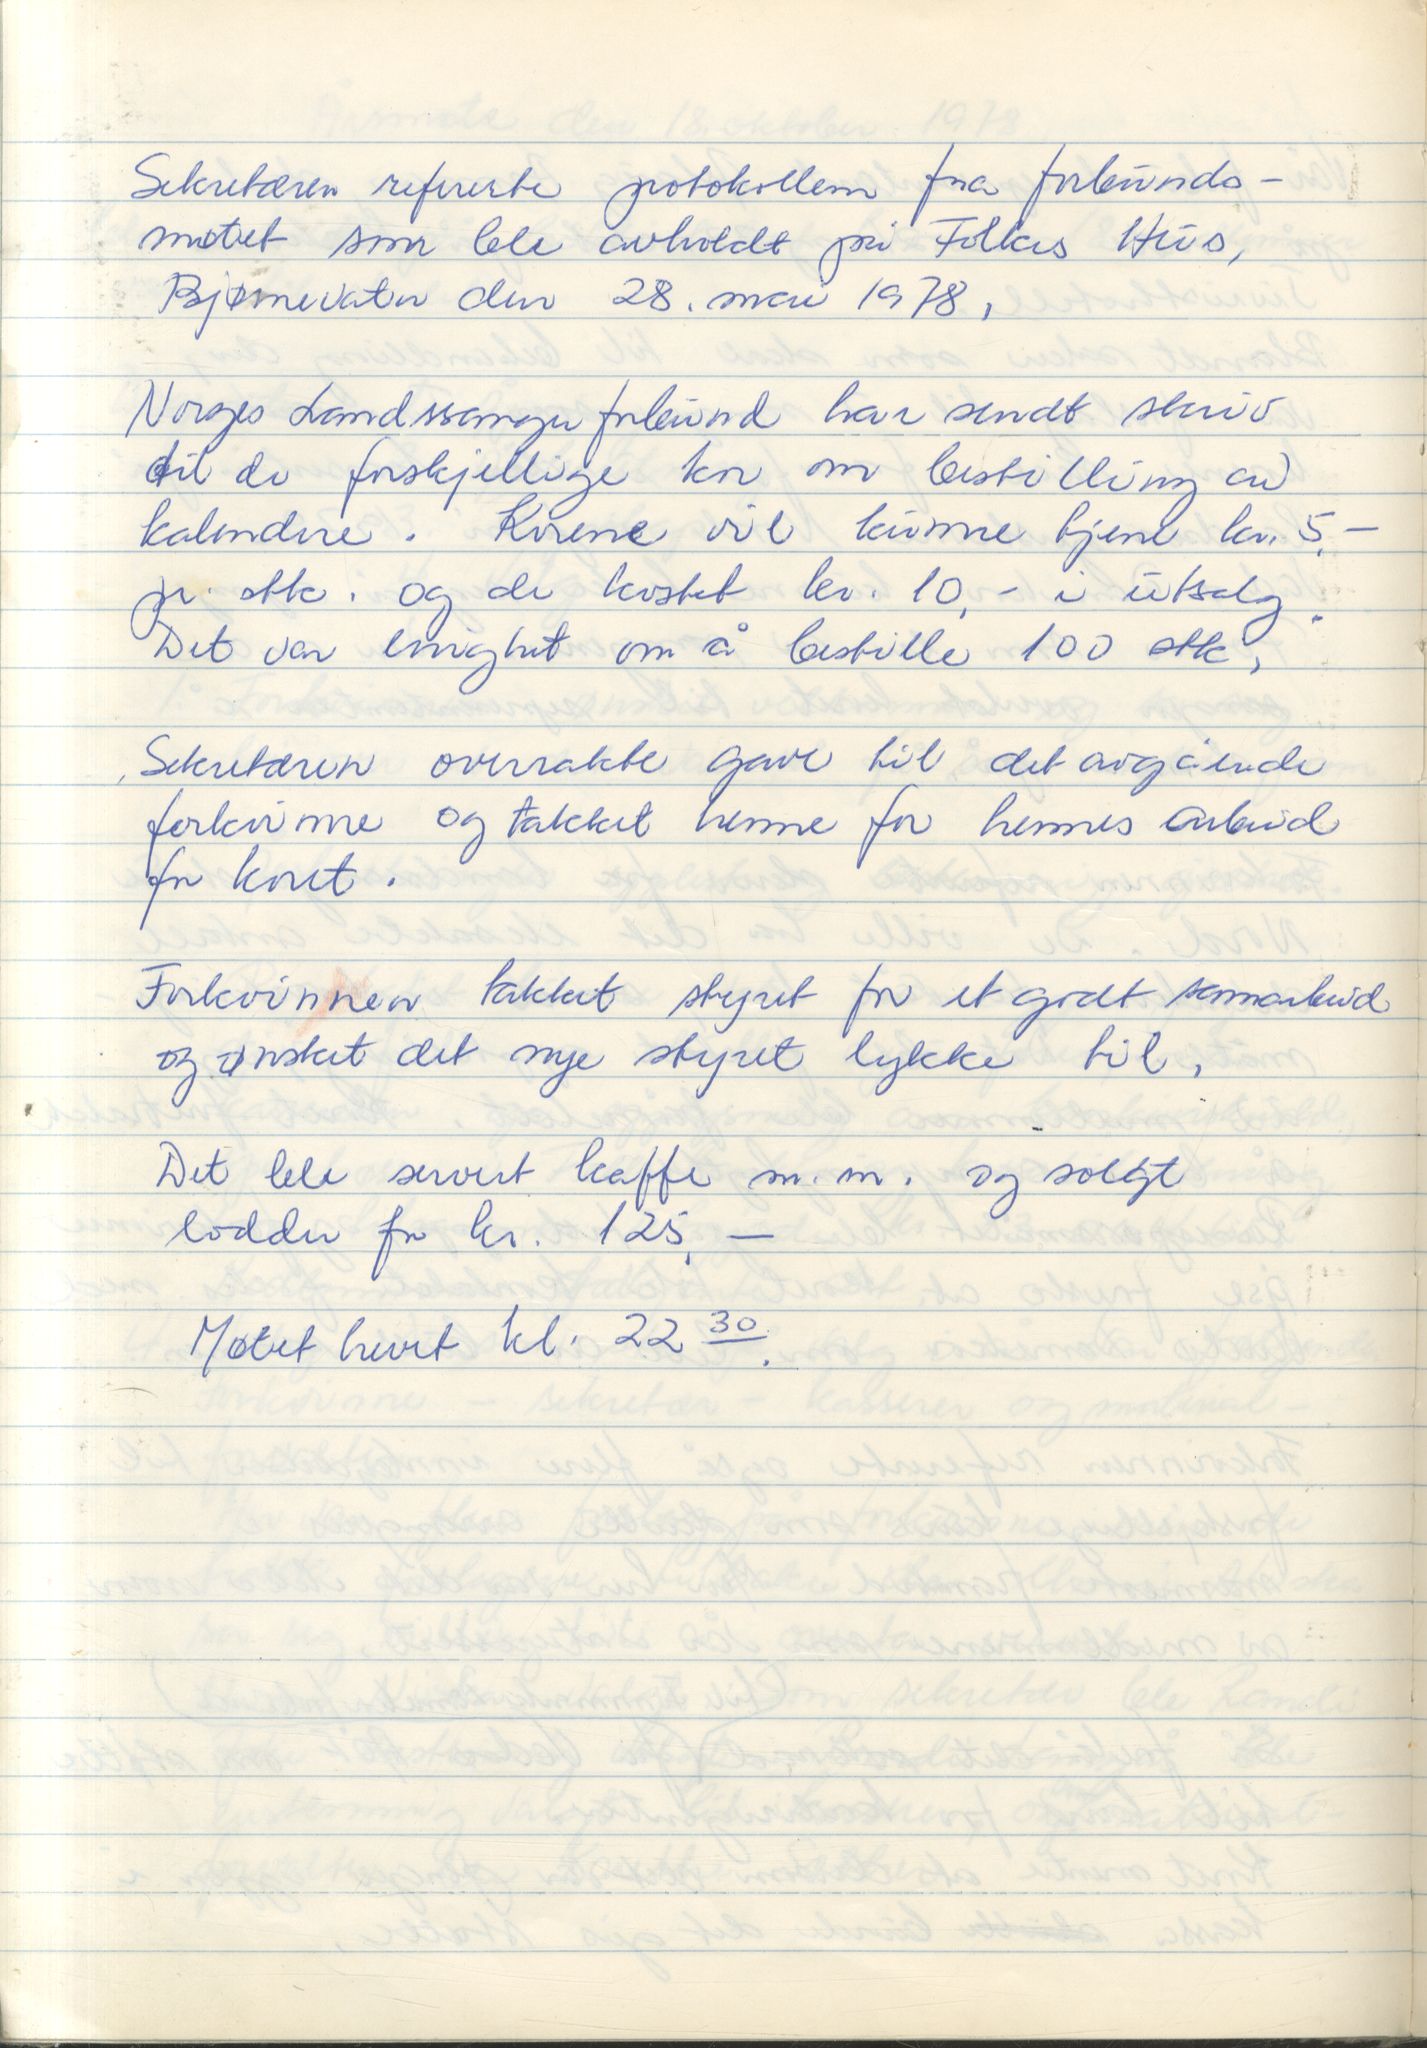 Sekretæren refererte protokollem fra forbunds-
møtet som ble avholdt på Folkes Hus,
Bjørnevatn den 28. mai 1978,
Norges Landssangerforbund har sendt skriv
til de forskjellige kor om bestilling av
kalendere. Korene vil kunne tjene kr. 5,-
pr. stk. og de kostet kr. 10,- i utsalg.
Det var enighet om å bestille 100 stk,
Sekretæren overrakte gave til det avgående
forkvinne og takket henne for hennes arbeid
for koret.
Forkvinnen takket styret for et godt samarbeid
og ønsket det nye styret lykke til,
Det ble servert kaffe m.m. og solgt
lodder for kr. 125,-
Møtet hevet kl. 22 30.